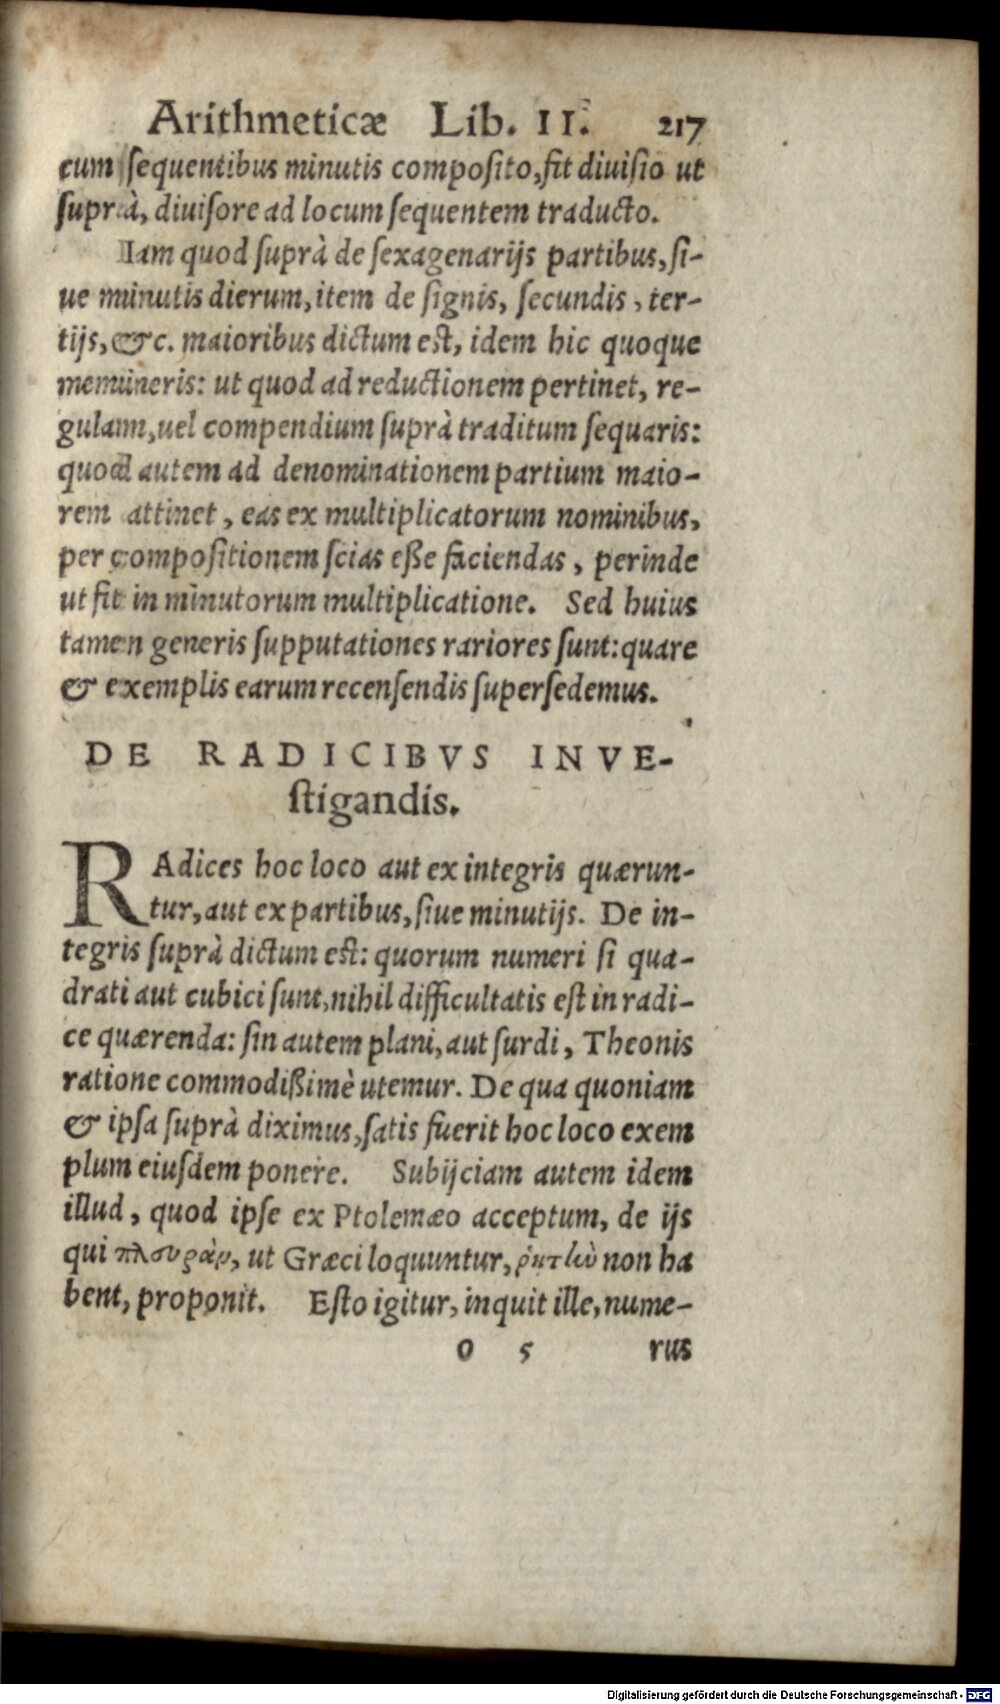 Arithmeticæ Lib. II. 217
cum ſequentibus minutis compoſito, fit diuiſio ut
ſuprà, diuiſore ad locum ſequentem traducto.
Iam quod ſuprà de ſexagenarijs partibus, ſi-
ue minutis dierum, item de ſignis, ſecundis, ter-
tijs, &c. maioribus dictum est, idem hic quoque
memineris: ut quod ad reductionem pertinet, re-
gulam, uel compendium ſuprà traditum ſequaris:
quod autem ad denominationem partium maio-
rem attinet, eas ex multiplicatorum nominibus,
per compoſitionem ſcias eſſe faciendas, perinde
ut fit in minutorum multiplicatione. Sed huius
tamen generis ſupputationes rariores ſunt: quare
& exemplis earum recenſendis ſuperſedemus.
DE RADICIBVS INVE-
ſtigandis.
RAdices hoc loco aut ex integris quærun-
tur, aut ex partibus, ſiue minutijs. De in-
tegris ſuprà dictum est: quorum numeri ſi qua-
drati aut cubici ſunt, nihil difficultatis est in radi-
ce quærenda: ſin autem plani, aut ſurdi, Theonis
ratione commodißimè utemur. De qua quoniam
& ipſa ſuprà diximus, ſatis fuerit hoc loco exem
plum eiuſdem ponere. Subijciam autem idem
illud, quod ipſe ex Ptolemæo acceptum, de ijs
qui πλευρὰν, ut Græci loquuntur, ῥητὴν non ha
bent, proponit. Eſto igitur, inquit ille, nume-
o 5 rus
Digitalisierung gefördert durch die Deutsche Forschungsgemeinschaft - DFG